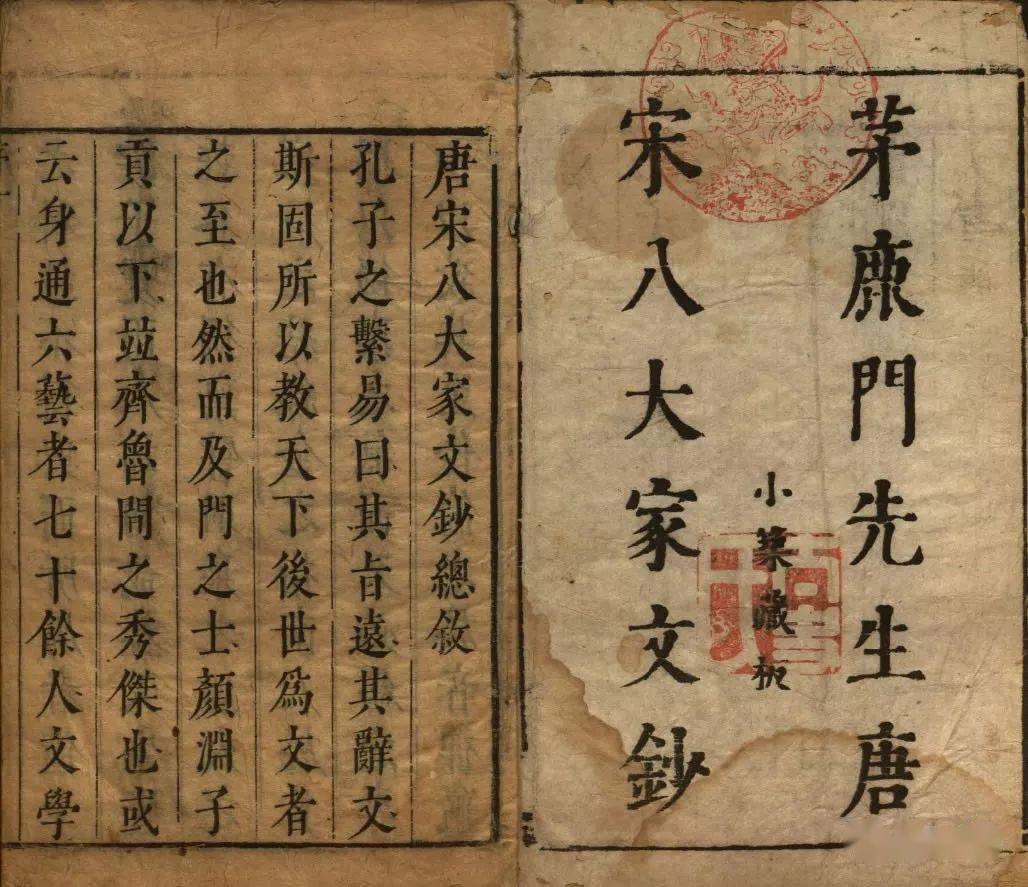 茅鹿門先生唐
宋八大家文鈔
小築藏板
唐宋八大家文鈔總敘
孔子之繫易曰其旨遠其辭文
斯固所以教天下後世爲文者
之至也然而及門之士顏淵子
貢以下竝齊魯間之秀傑也或
云身通六藝者七十餘人文學